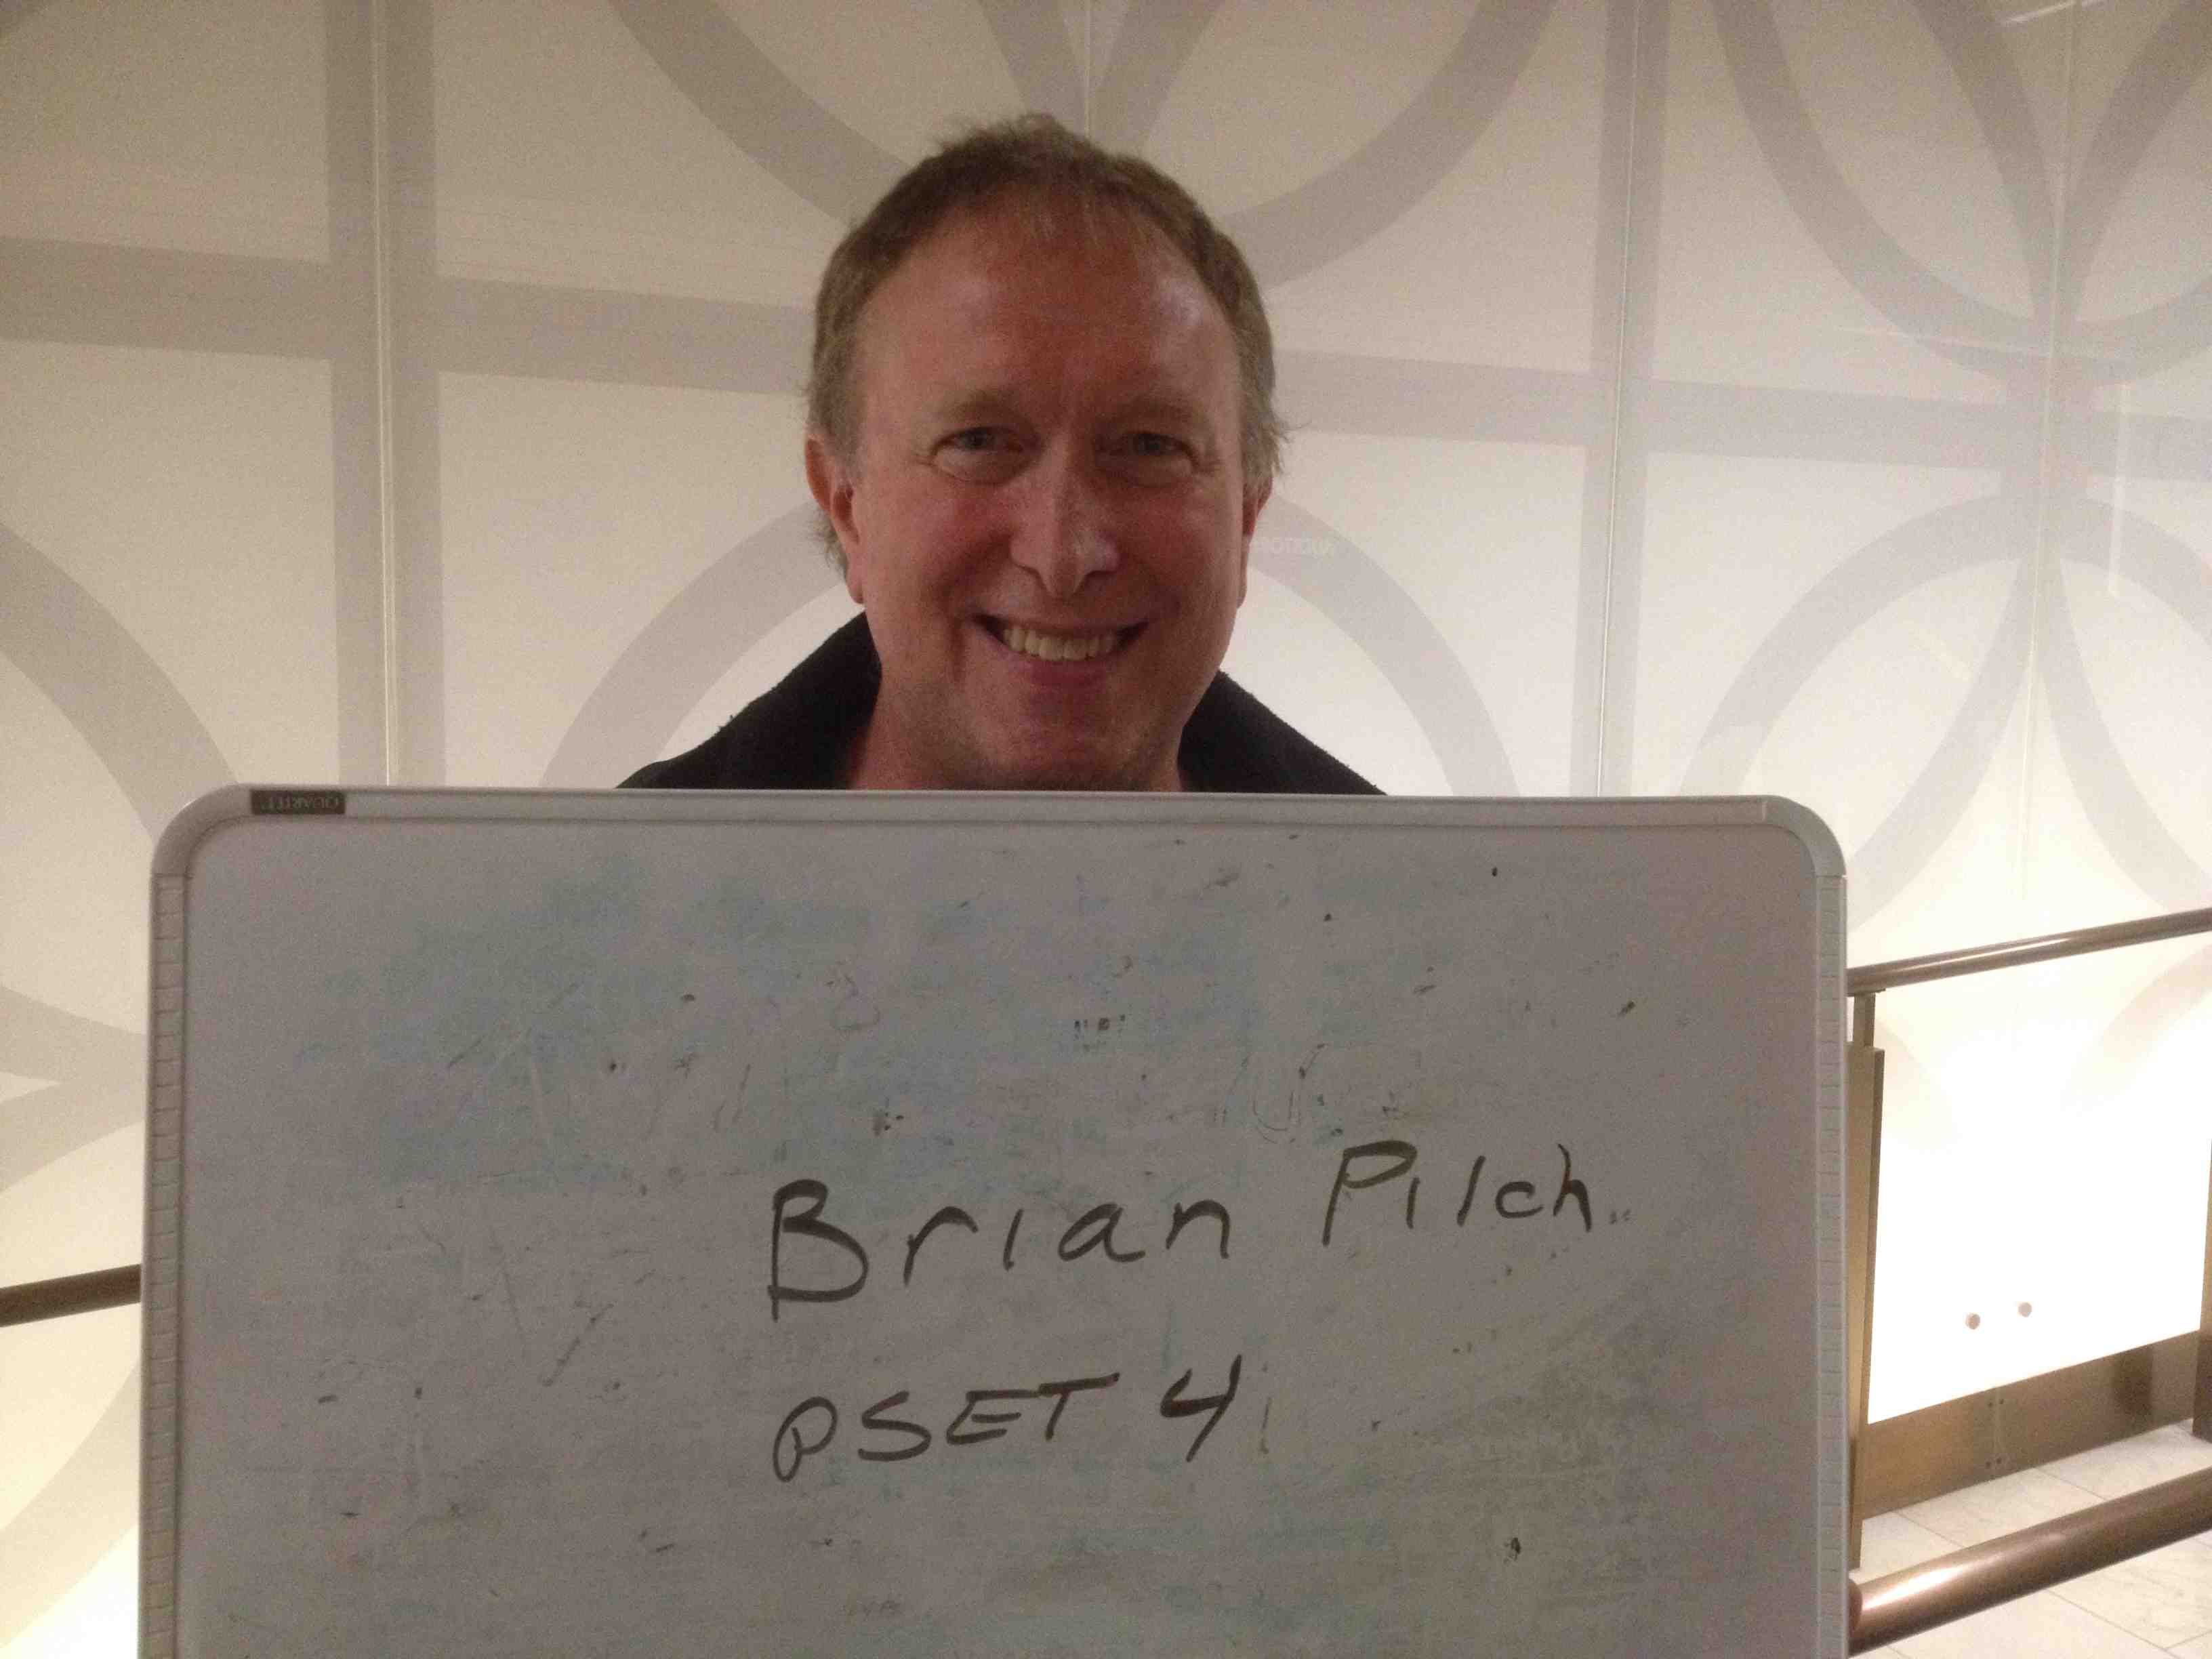 QUARTET
Brian Pilch
PSET 4